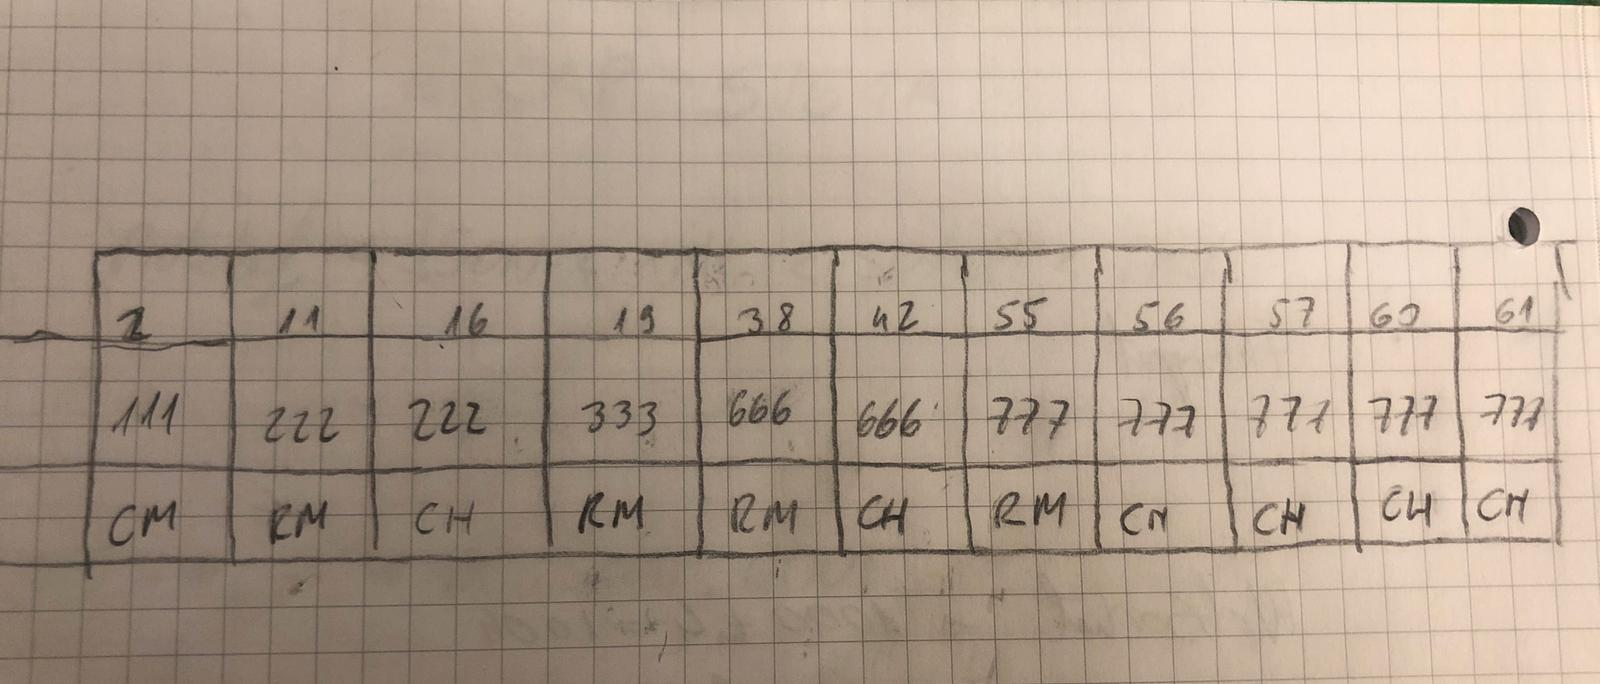 2 11 16 19 38 42 55 56 57 60 61
111 222 222 333 666 666 777 777 777 777 777
CM RM CH RM RM CH RM CH CH CH CH